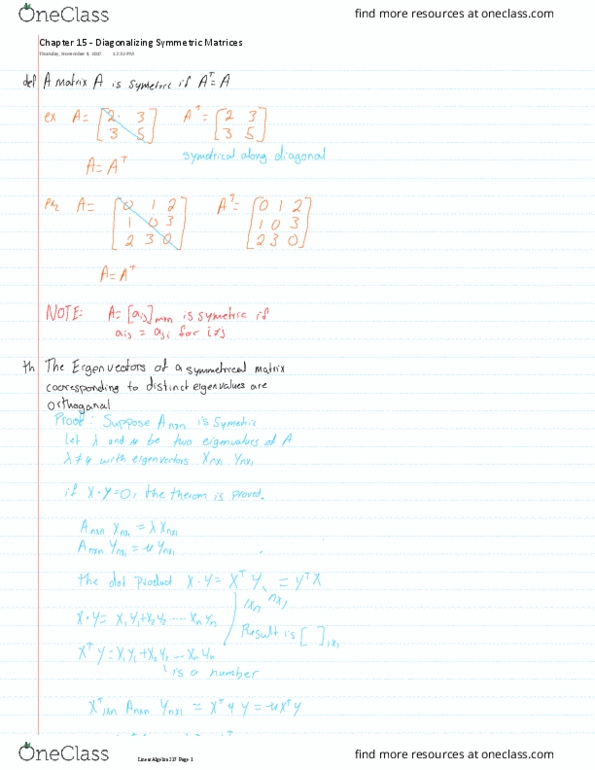 OneClass
find more resources at oneclass.com
Chapter 15 - Diagonalizing Symmetric Matrices
Thursday, November 9, 2017 12:32 PM
def A matrix A is symetric if Aᵀ=A
ex A= [2 3 Aᵀ= [2 3
3 5] 3 5]
symetrical along diagonal
A=Aᵀ
A= [0 1 2 Aᵀ= [0 1 2
1 0 3 1 0 3
2 3 0] 2 3 0]
A=Aᵀ
NOTE: A= [aij]mxn is symetric if
aij = aji for i≠j
th The Eigenvectors of a symmetrical matrix
coorresponding to distinct eigenvalues are
orthoganal
Proof: Suppose Anxn is Symetric
Let λ and u be two eigenvalues of A
λ≠u with eigenvectors Xnx1 Ynx1
if X·Y=0, the therom is proved.
Anxn Xnx1 = λXnx1
Anxn Ynx1 = uYnx1
the dot product X·Y= Xᵀ Y = YᵀX
1xn nx1
X·Y= X1Y1+X2Y2 ..... XnYn
Result is [ ]1x1
XᵀY = X1Y1+X2Y2 ... XnYn
is a number
Xᵀ1xn Anxn Ynx1 = Xᵀuy = uXᵀy
OneClass
Linear Algebra 217 Page 1
find more resources at oneclass.com